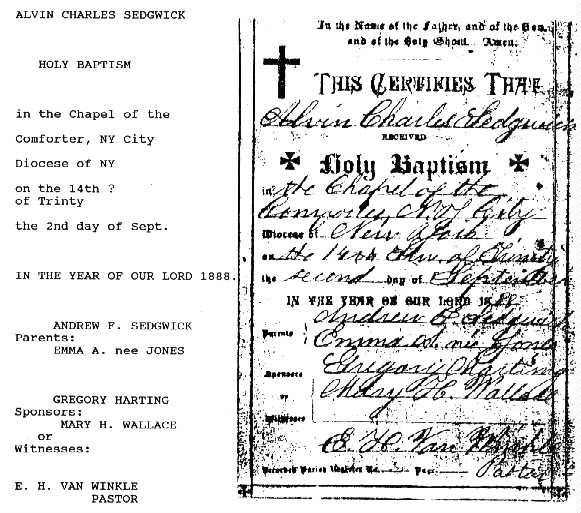 ALVIN CHARLES SEDGWICK
HOLY BAPTISM
in the Chapel of the
Comforter, NY City
Diocese of NY
on the 14th ?
of Trinty
the 2nd day of Sept.
IN THE YEAR OF OUR LORD 1888.
ANDREW F. SEDGWICK
Parents:
EMMA A. nee JONES
GREGORY HARTING
Sponsors:
MARY H. WALLACE
or
Witnesses:
E. H. VAN WINKLE
PASTOR
In the Name of the Father, and of the Son,
and of the Holy Ghost. Amen.
THIS CERTIFIES THAT
Alvin Charles Sedgwick
RECEIVED
Holy Baptism
in the Chapel of the
N.Y. City
Diocese of New York
on the 14th of Trinity
the second day of September
IN THE YEAR OF OUR LORD 1888
Andrew F. Sedgwick
Parents
Emma A. née Jones
Gregory Harting
Sponsors
or
Mary H. Wallace
Witnesses
E. H. Van Winkle
Recorded Parish Register No. Page
Pastor